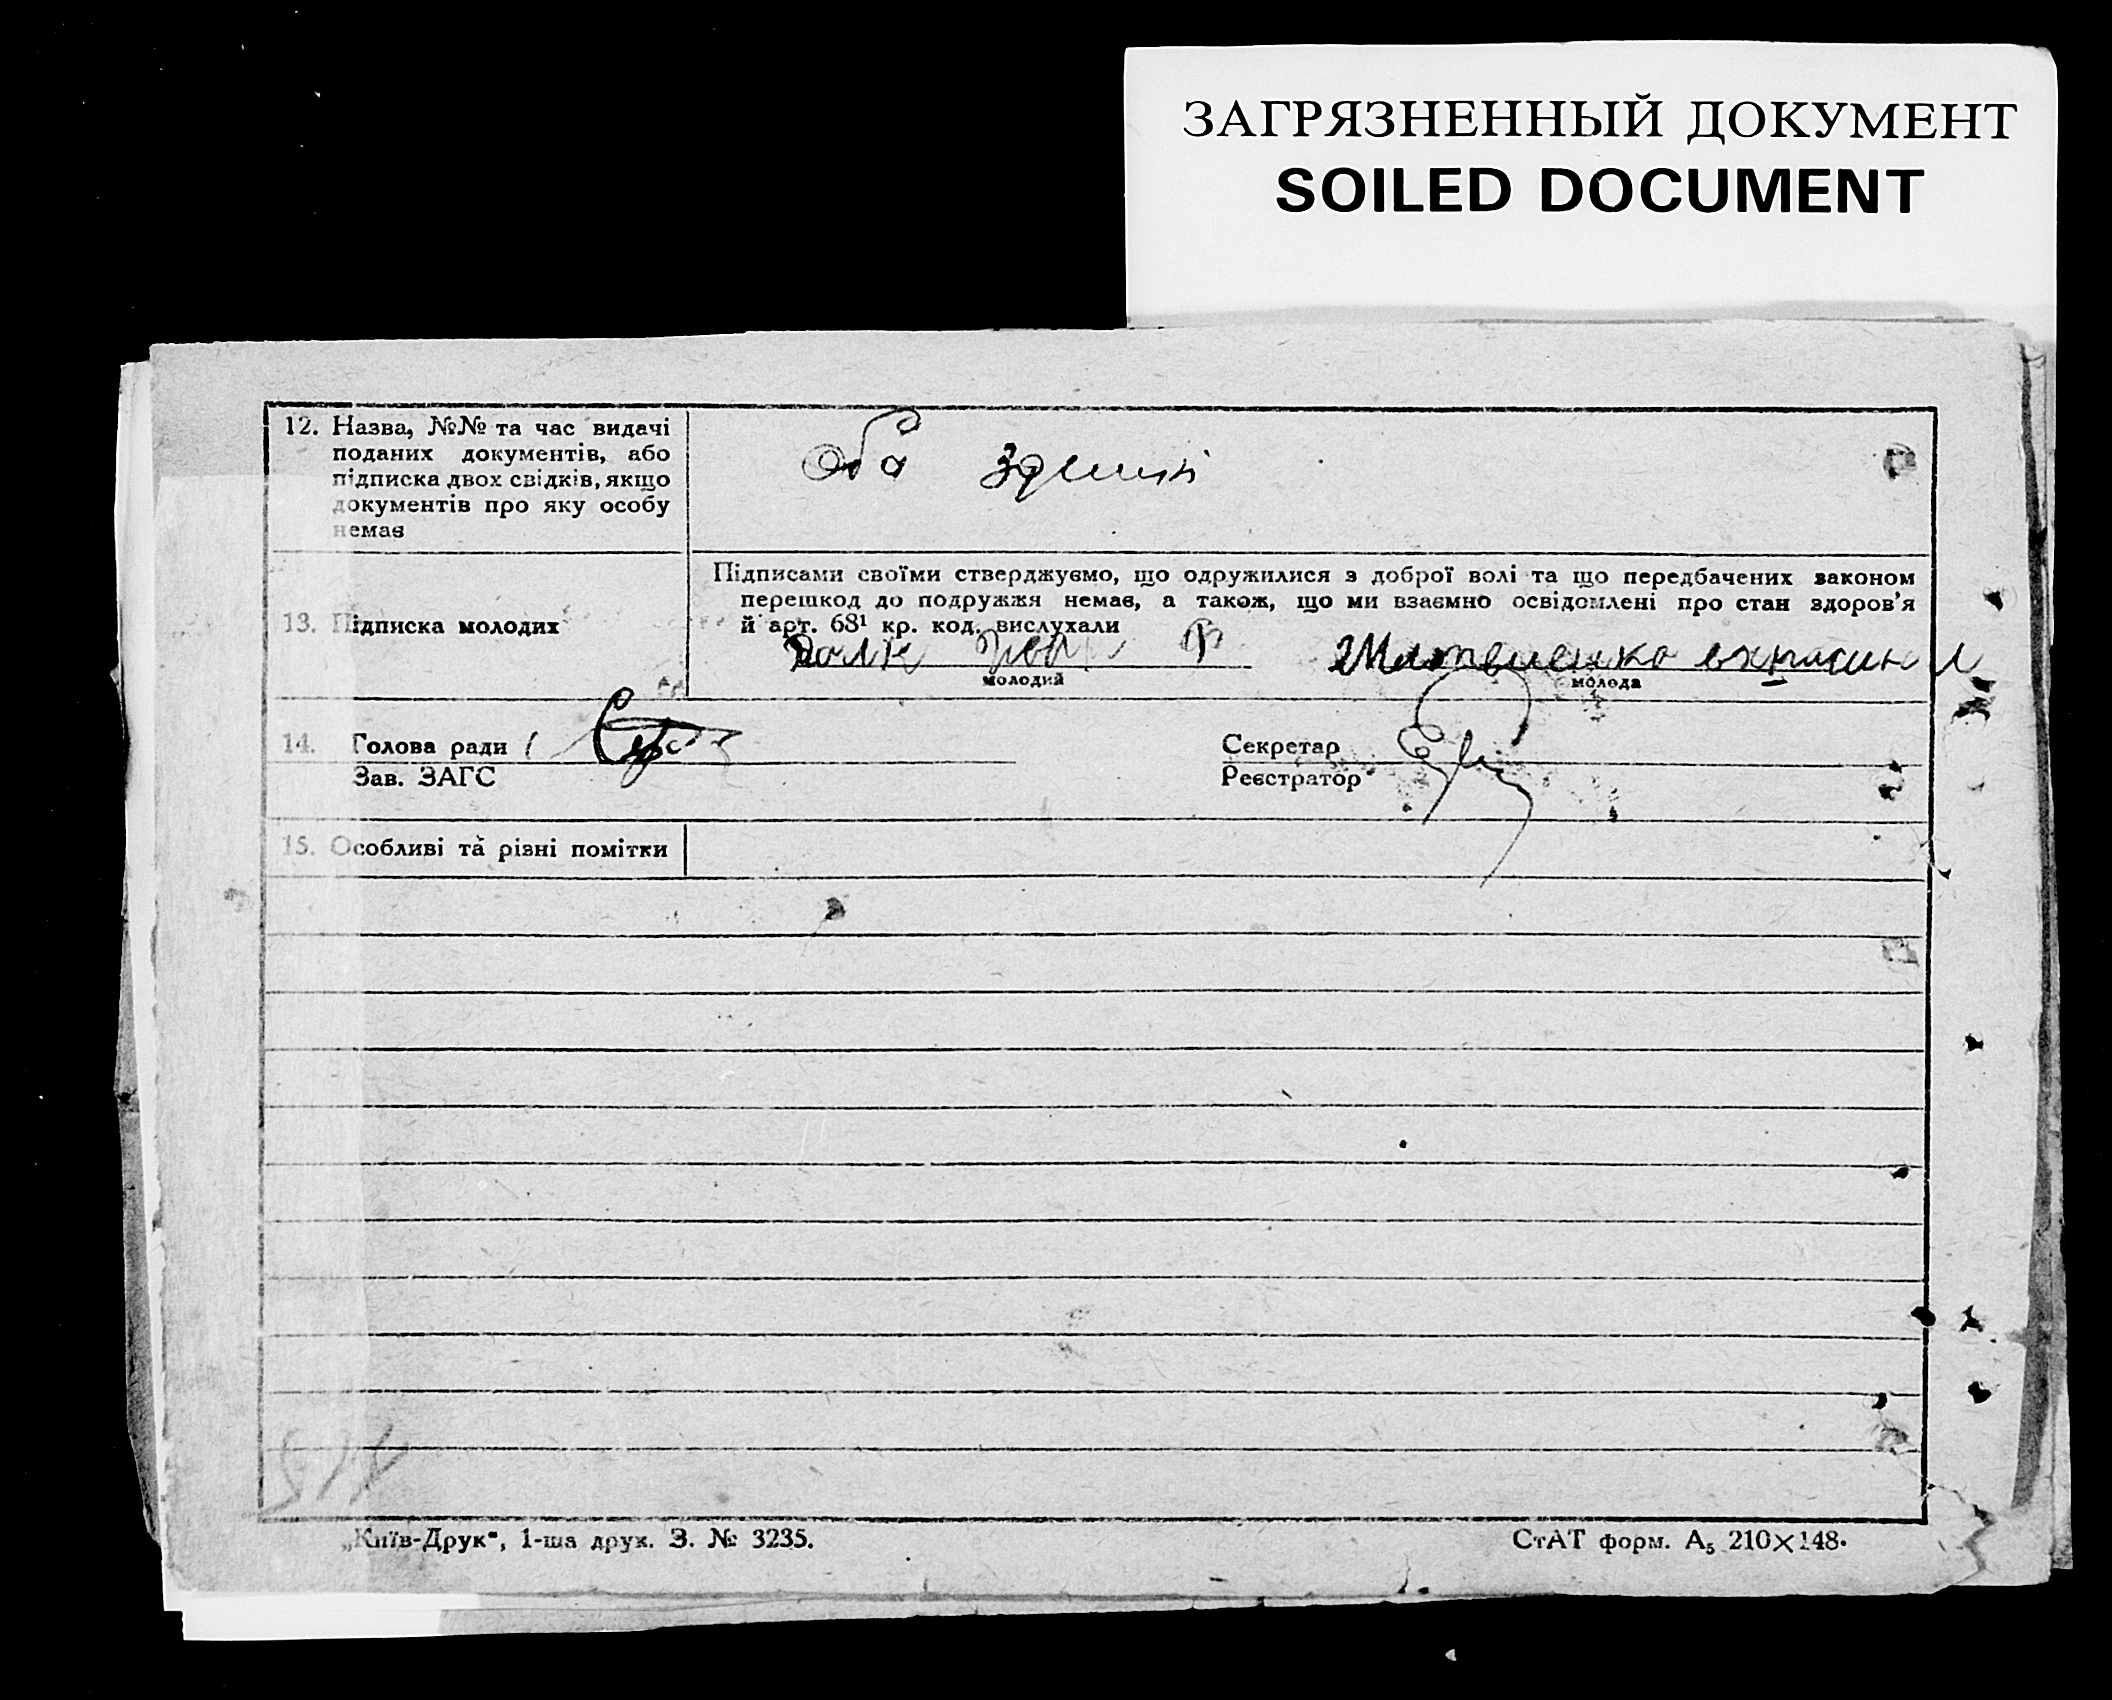 ЗАГРЯЗНЕННЫЙ ДОКУМЕНТ
SOILED DOCUMENT
12. Назва, №№ та час видачі
поданих документів, або
підписка двох свідків, якщо
документів про яку особу
немає
Оба здешні
13. Підписка молодих
Підписами своїми стверджуємо, що одружилися з доброї волі та що передбачених законом
перешкод до подружжя немає, а також, що ми взаємно освідомлені про стан здоров'я
й арт. 68¹ кр. код. вислухали
Матвиенко
молодий
молода
14. Голова ради
Зав. ЗАГС
Секретар
Реєстратор
15. Особливі та різні помітки
„Київ-Друк", 1-ша друк. З. № 3235.
СтАТ форм. А₅ 210×148.